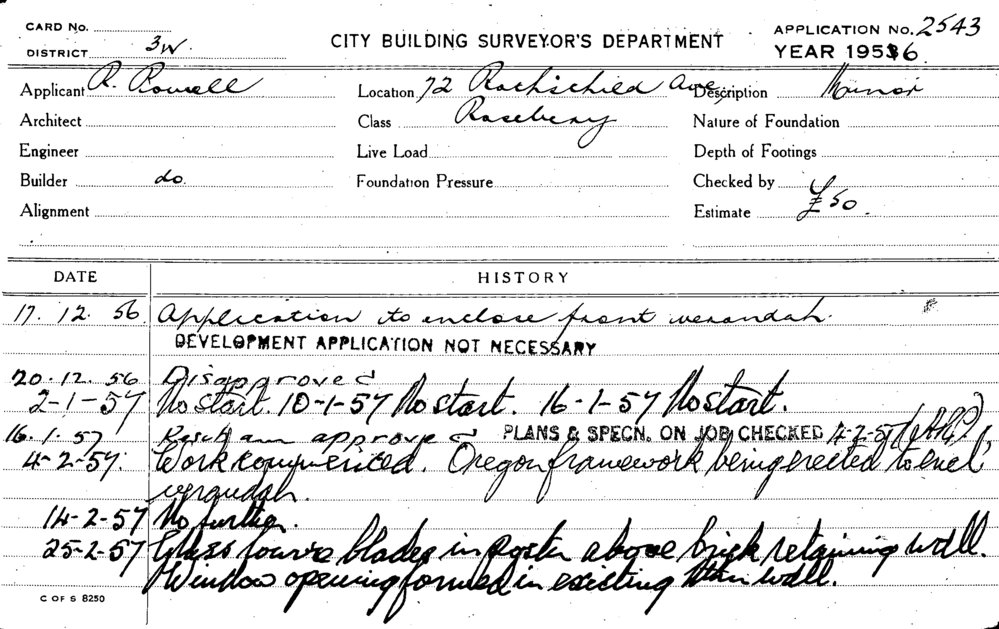 CARD No.
DISTRICT 3W.
CITY BUILDING SURVEYOR'S DEPARTMENT
APPLICATION No. 2543
YEAR 1956.
Applicant R. Rowell Location 72 Rothschild Ave, Description Minor
Architect Class Rosebery Nature of Foundation
Engineer Live Load Depth of Footings
Builder do. Foundation Pressure Checked by
Alignment Estimate £50.
DATE HISTORY
17. 12. 56 Application to enclose front verandah.
DEVELOPMENT APPLICATION NOT NECESSARY
20.12.56 Disapproved
2-1-57 No start. 10-1-57 No start. 16-1-57 No start.
16.1.57 approved PLANS & SPECN. ON JOB CHECKED 4-2-57
4-2-57. Work commenced. Oregon framework being erected to encl'
verandah.
14-2-57 No further.
25-2-57 Glass louvre blades in above brick retaining wall.
Window opening formed in existing wall.
C OF S 8250